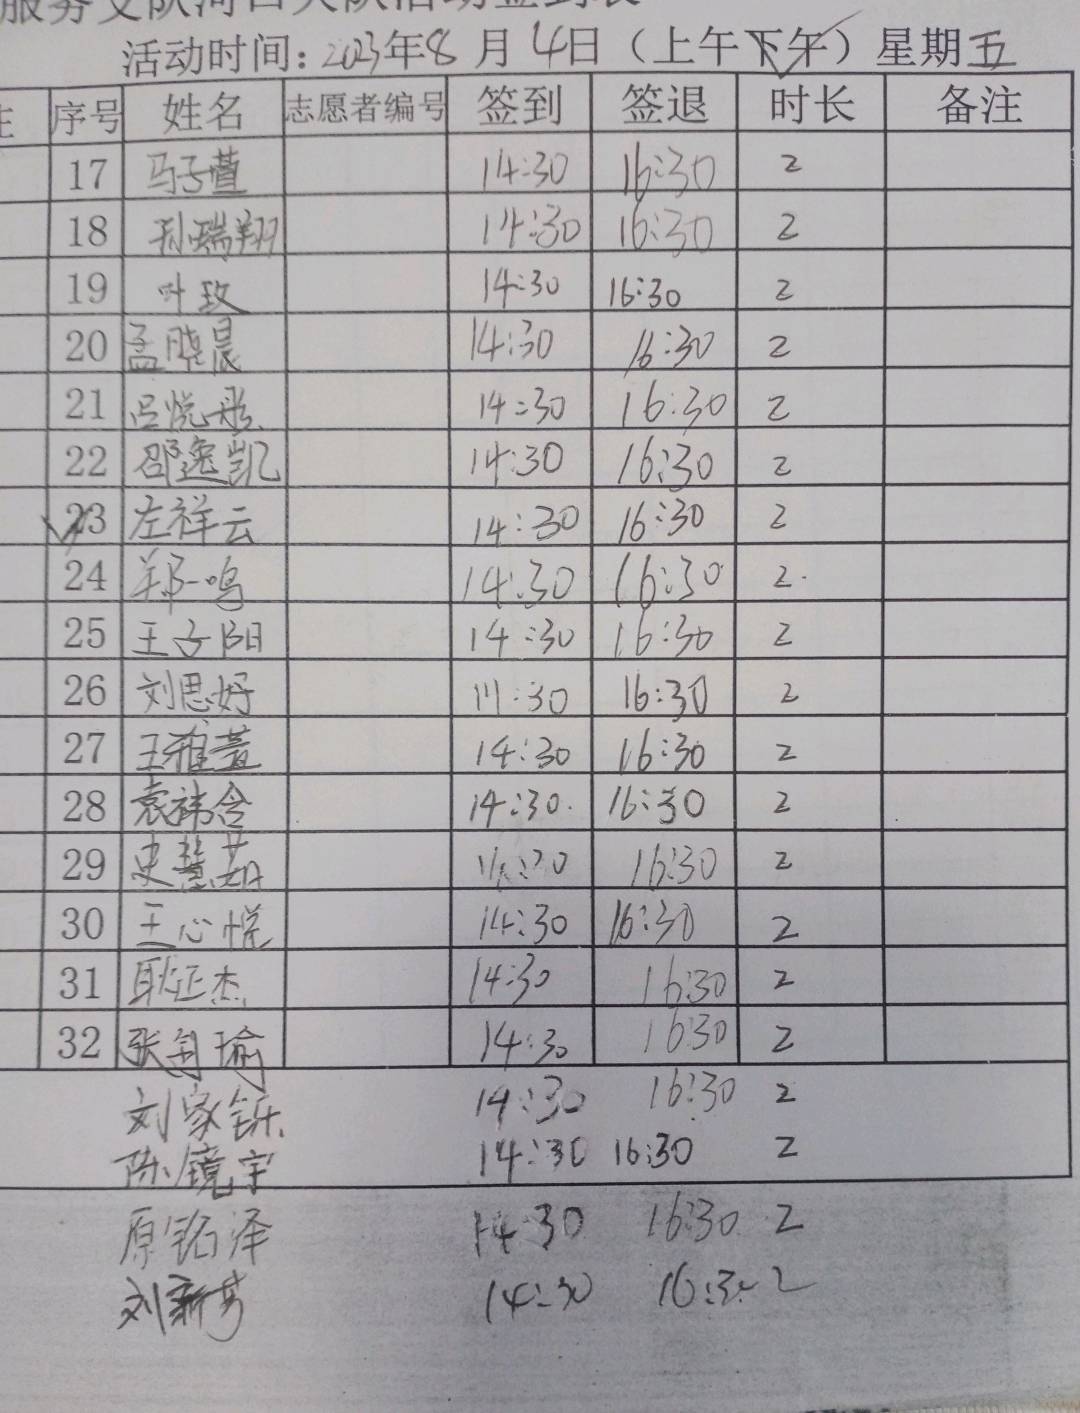 活动时间：2023年8月4日（上午下午）星期五
序号 姓名 志愿者编号 签到 签退 时长 备注
17 马子萱 14:30 16:30 2
18 孙瑞翔 14:30 16:30 2
19 叶玫 14:30 16:30 2
20 孟晓晨 14:30 16:30 2
21 吕悦彤 14:30 16:30 2
22 邵逸凯 14:30 16:30 2
23 左祥云 14:30 16:30 2
24 郑一鸣 14:30 16:30 2
25 王子阳 14:30 16:30 2
26 刘思妤 14:30 16:30 2
27 王雅萱 14:30 16:30 2
28 袁祎含 14:30 16:30 2
29 史慧茹 16:30 2
30 王心悦 14:30 16:30 2
31 耿正杰 14:30 16:30 2
32 张 瑜 14:30 16:30 2
刘家铄 14:30 16:30 2
陈镜宇 14:30 16:30 2
原铭泽 14:30 16:30 2
刘新芳 14:30 16:30 2